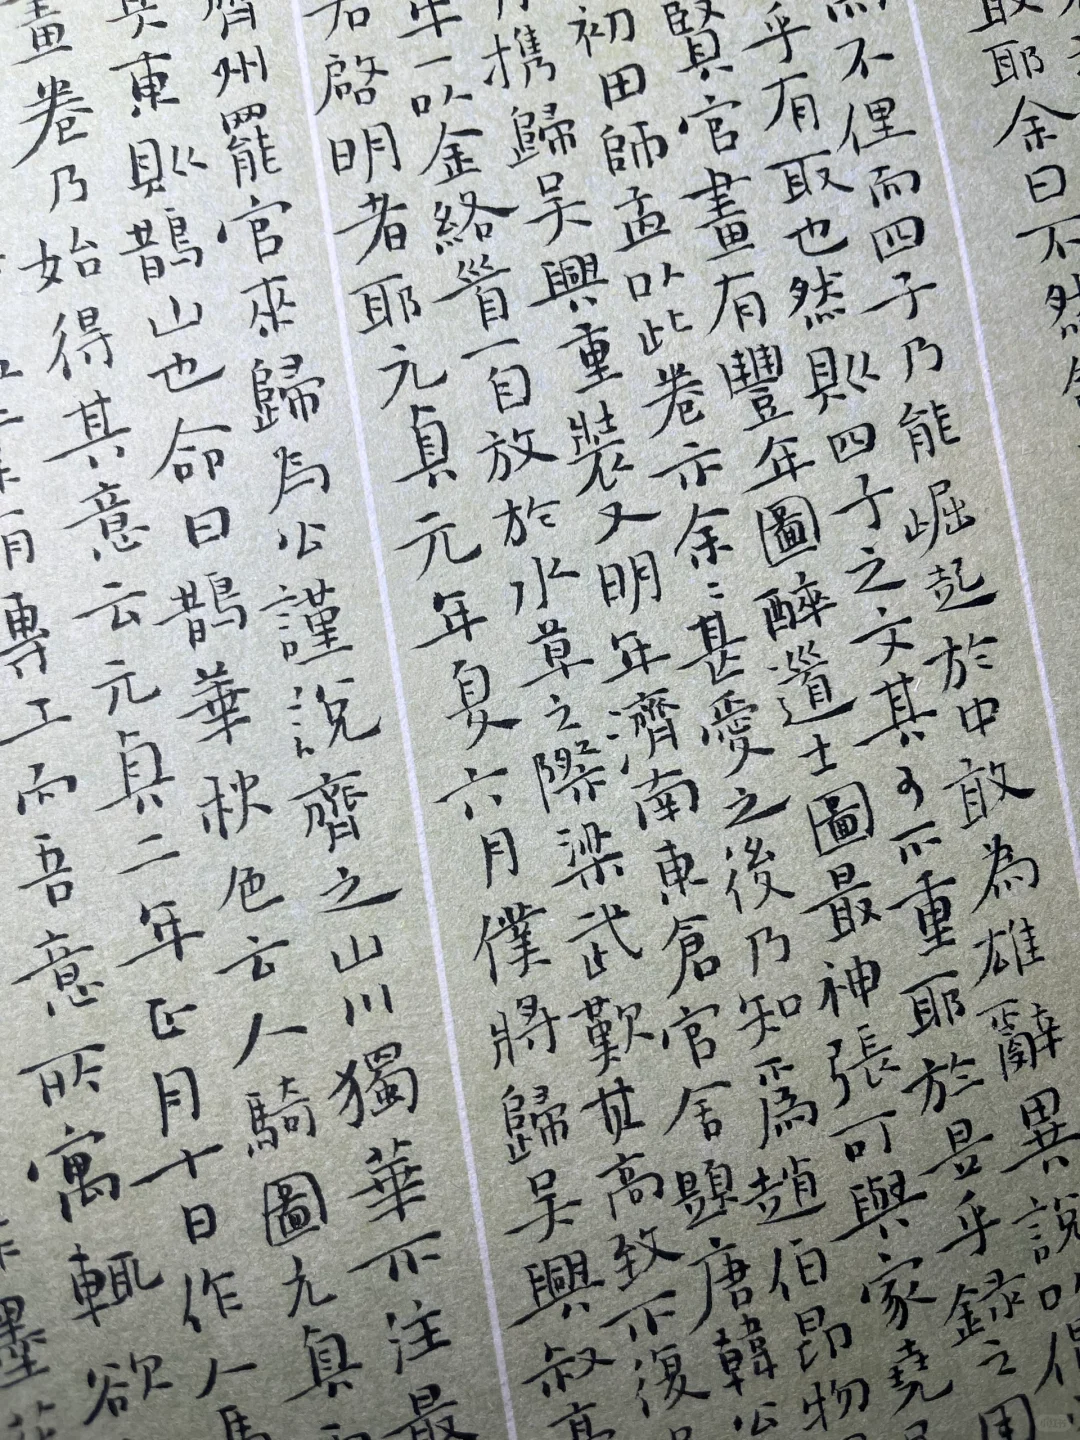 耶余曰不然
不俚而四子乃能崛起於中敢為雄辭異說
乎有取也然則四子之文其可不重耶於是乎錄之用
賢官畫有豐年圖醉道士圖最神張可與家堯
初田師孟以此卷示余〻甚愛之後乃知爲趙伯昂物
携歸吳興重裝又明年濟南東倉官舍題唐韓公
年一以金絡首一自放於水草之際梁武歎其高致不復
若啓明者耶元貞元年夏六月僕將歸吳興叔高
齊州罷官來歸爲公謹說齊之山川獨華不注最
其東則鵲山也命曰鵲華秋色云人騎圖元貞
畫卷乃始得其意云元貞二年正月十日作人馬
有專工而吾意所寓輒欲
墨